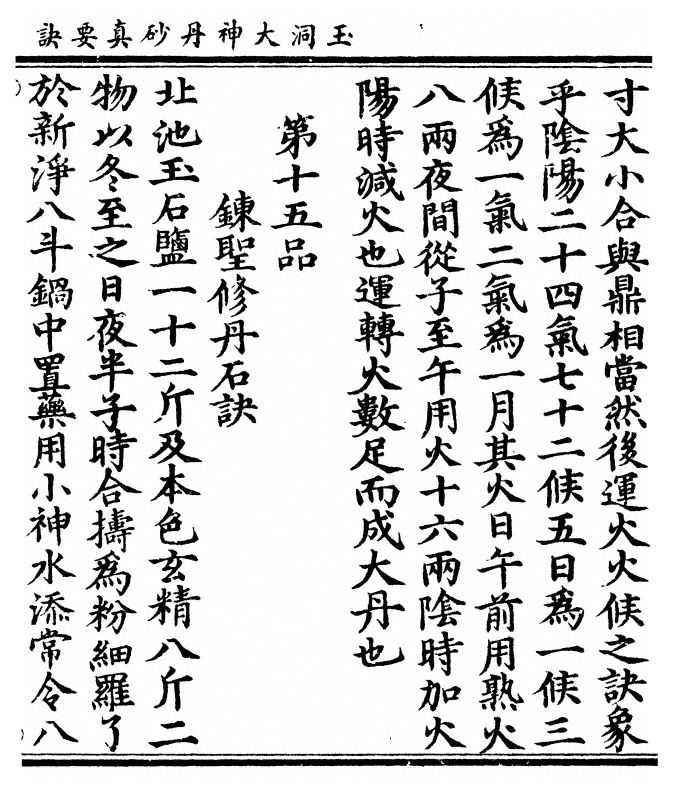 玉洞大神丹砂真要訣
寸大小合與鼎相當然後運火火候之訣象
乎陰陽二十四氣七十二候五日爲一候三
候爲一氣二氣爲一月其火日午前用熟火
八兩夜間從子至午用火十六兩陰時加火
陽時減火也運轉火數足而成大丹也
第十五品
鍊聖修丹石訣
北池玉石鹽一十二斤及本色玄精八斤二
物以冬至之日夜半子時合擣爲粉細羅了
於新淨八斗鍋中置藥用小神水添常令八